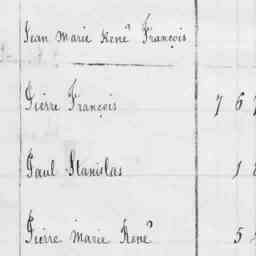 Jean Marie René François
Pierre François 7 6
Paul Stanislas 1
Pierre Marie René 5